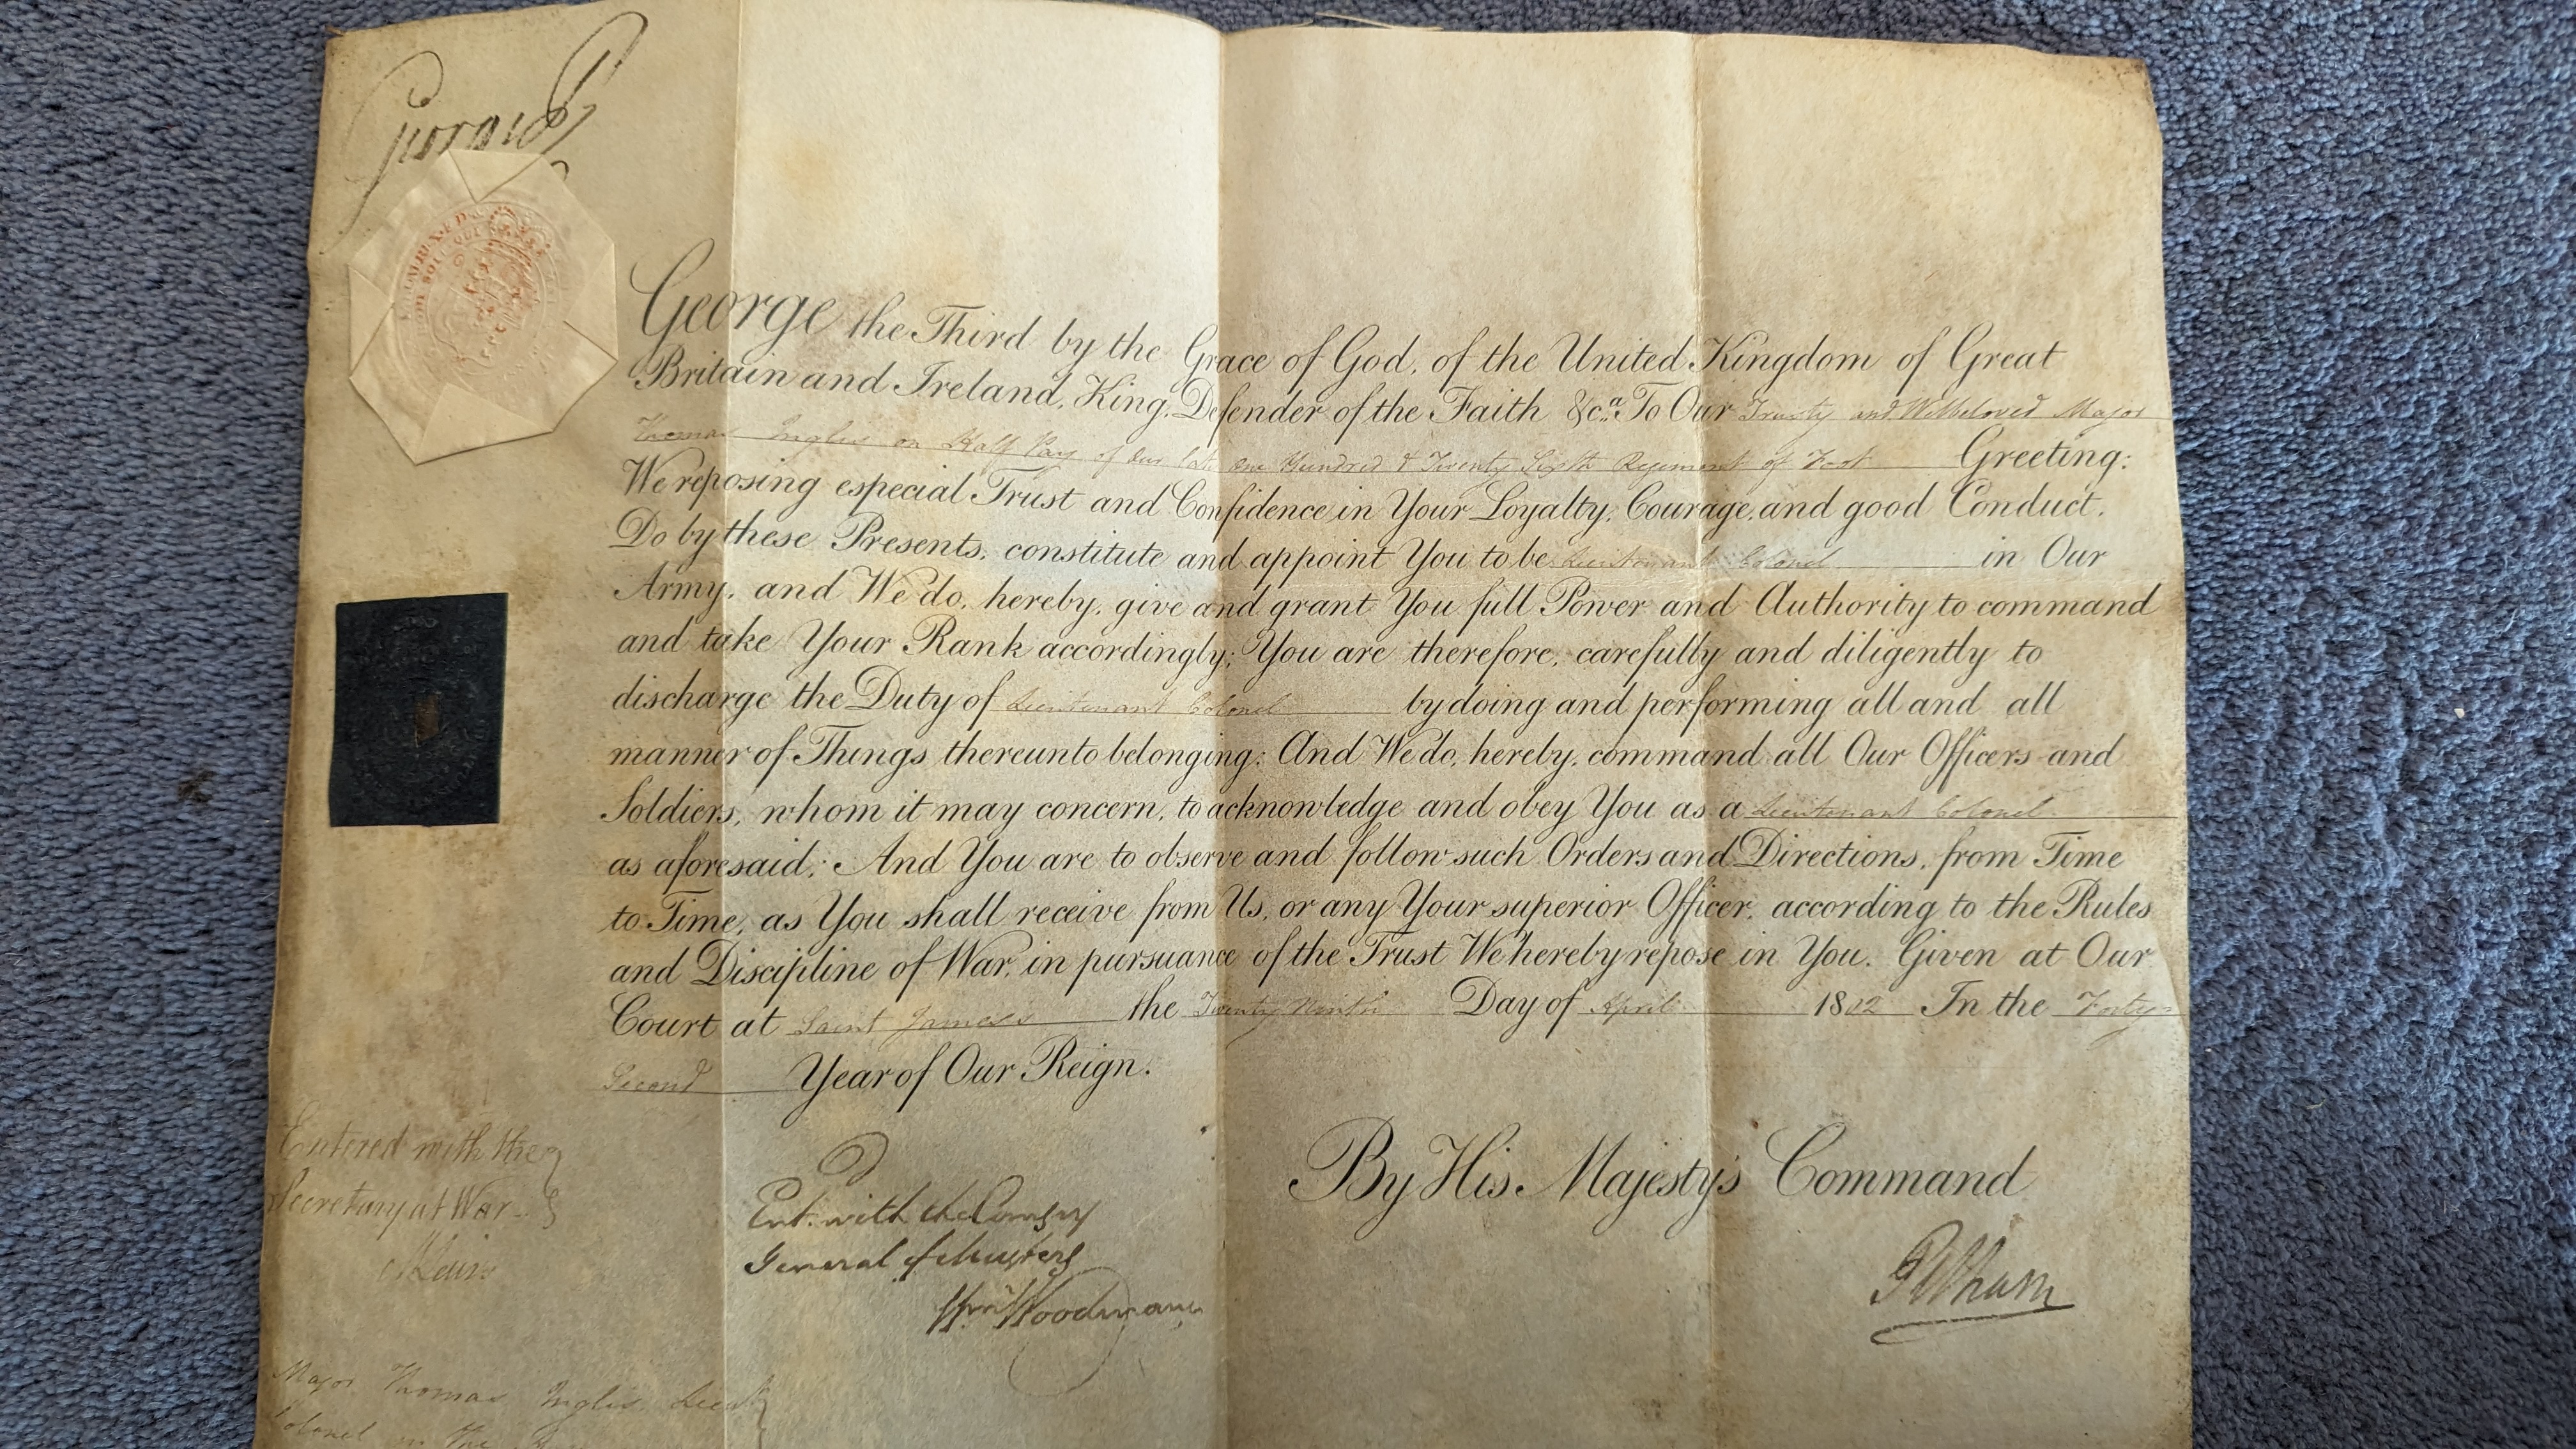 George R
George the Third by the Grace of God, of the United Kingdom of Great
Britain and Ireland, King, Defender of the Faith &c.a To Our Trusty and Wellbeloved Major
Thomas Inglis on Half Pay of our late One Hundred & Twenty Sixth Regiment of Foot Greeting:
We reposing especial Trust and Confidence in Your Loyalty, Courage, and good Conduct,
Do by these Presents, constitute and appoint You to be Lieutenant Colonel in Our
Army, and We do, hereby, give and grant You full Power and Authority to command
and take Your Rank accordingly; You are therefore, carefully and diligently to
discharge the Duty of Lieutenant Colonel by doing and performing all and all
manner of Things thereunto belonging: And We do, hereby, command all Our Officers and
Soldiers, whom it may concern, to acknowledge and obey You as a Lieutenant Colonel
as aforesaid: And You are to observe and follow such Orders and Directions, from Time
to Time, as You shall receive from Us, or any Your superior Officer, according to the Rules
and Discipline of War, in pursuance of the Trust We hereby repose in You. Given at Our
Court at Saint James's the Twenty Ninth Day of April 1802 In the Forty-
Second Year of Our Reign.
By His Majesty's Command
Pelham
Entered with the
Secretary at War
Ent. with the Comsy
General of Musters
Wm Woodman
Major Thomas Inglis, Lieut
Colonel in the